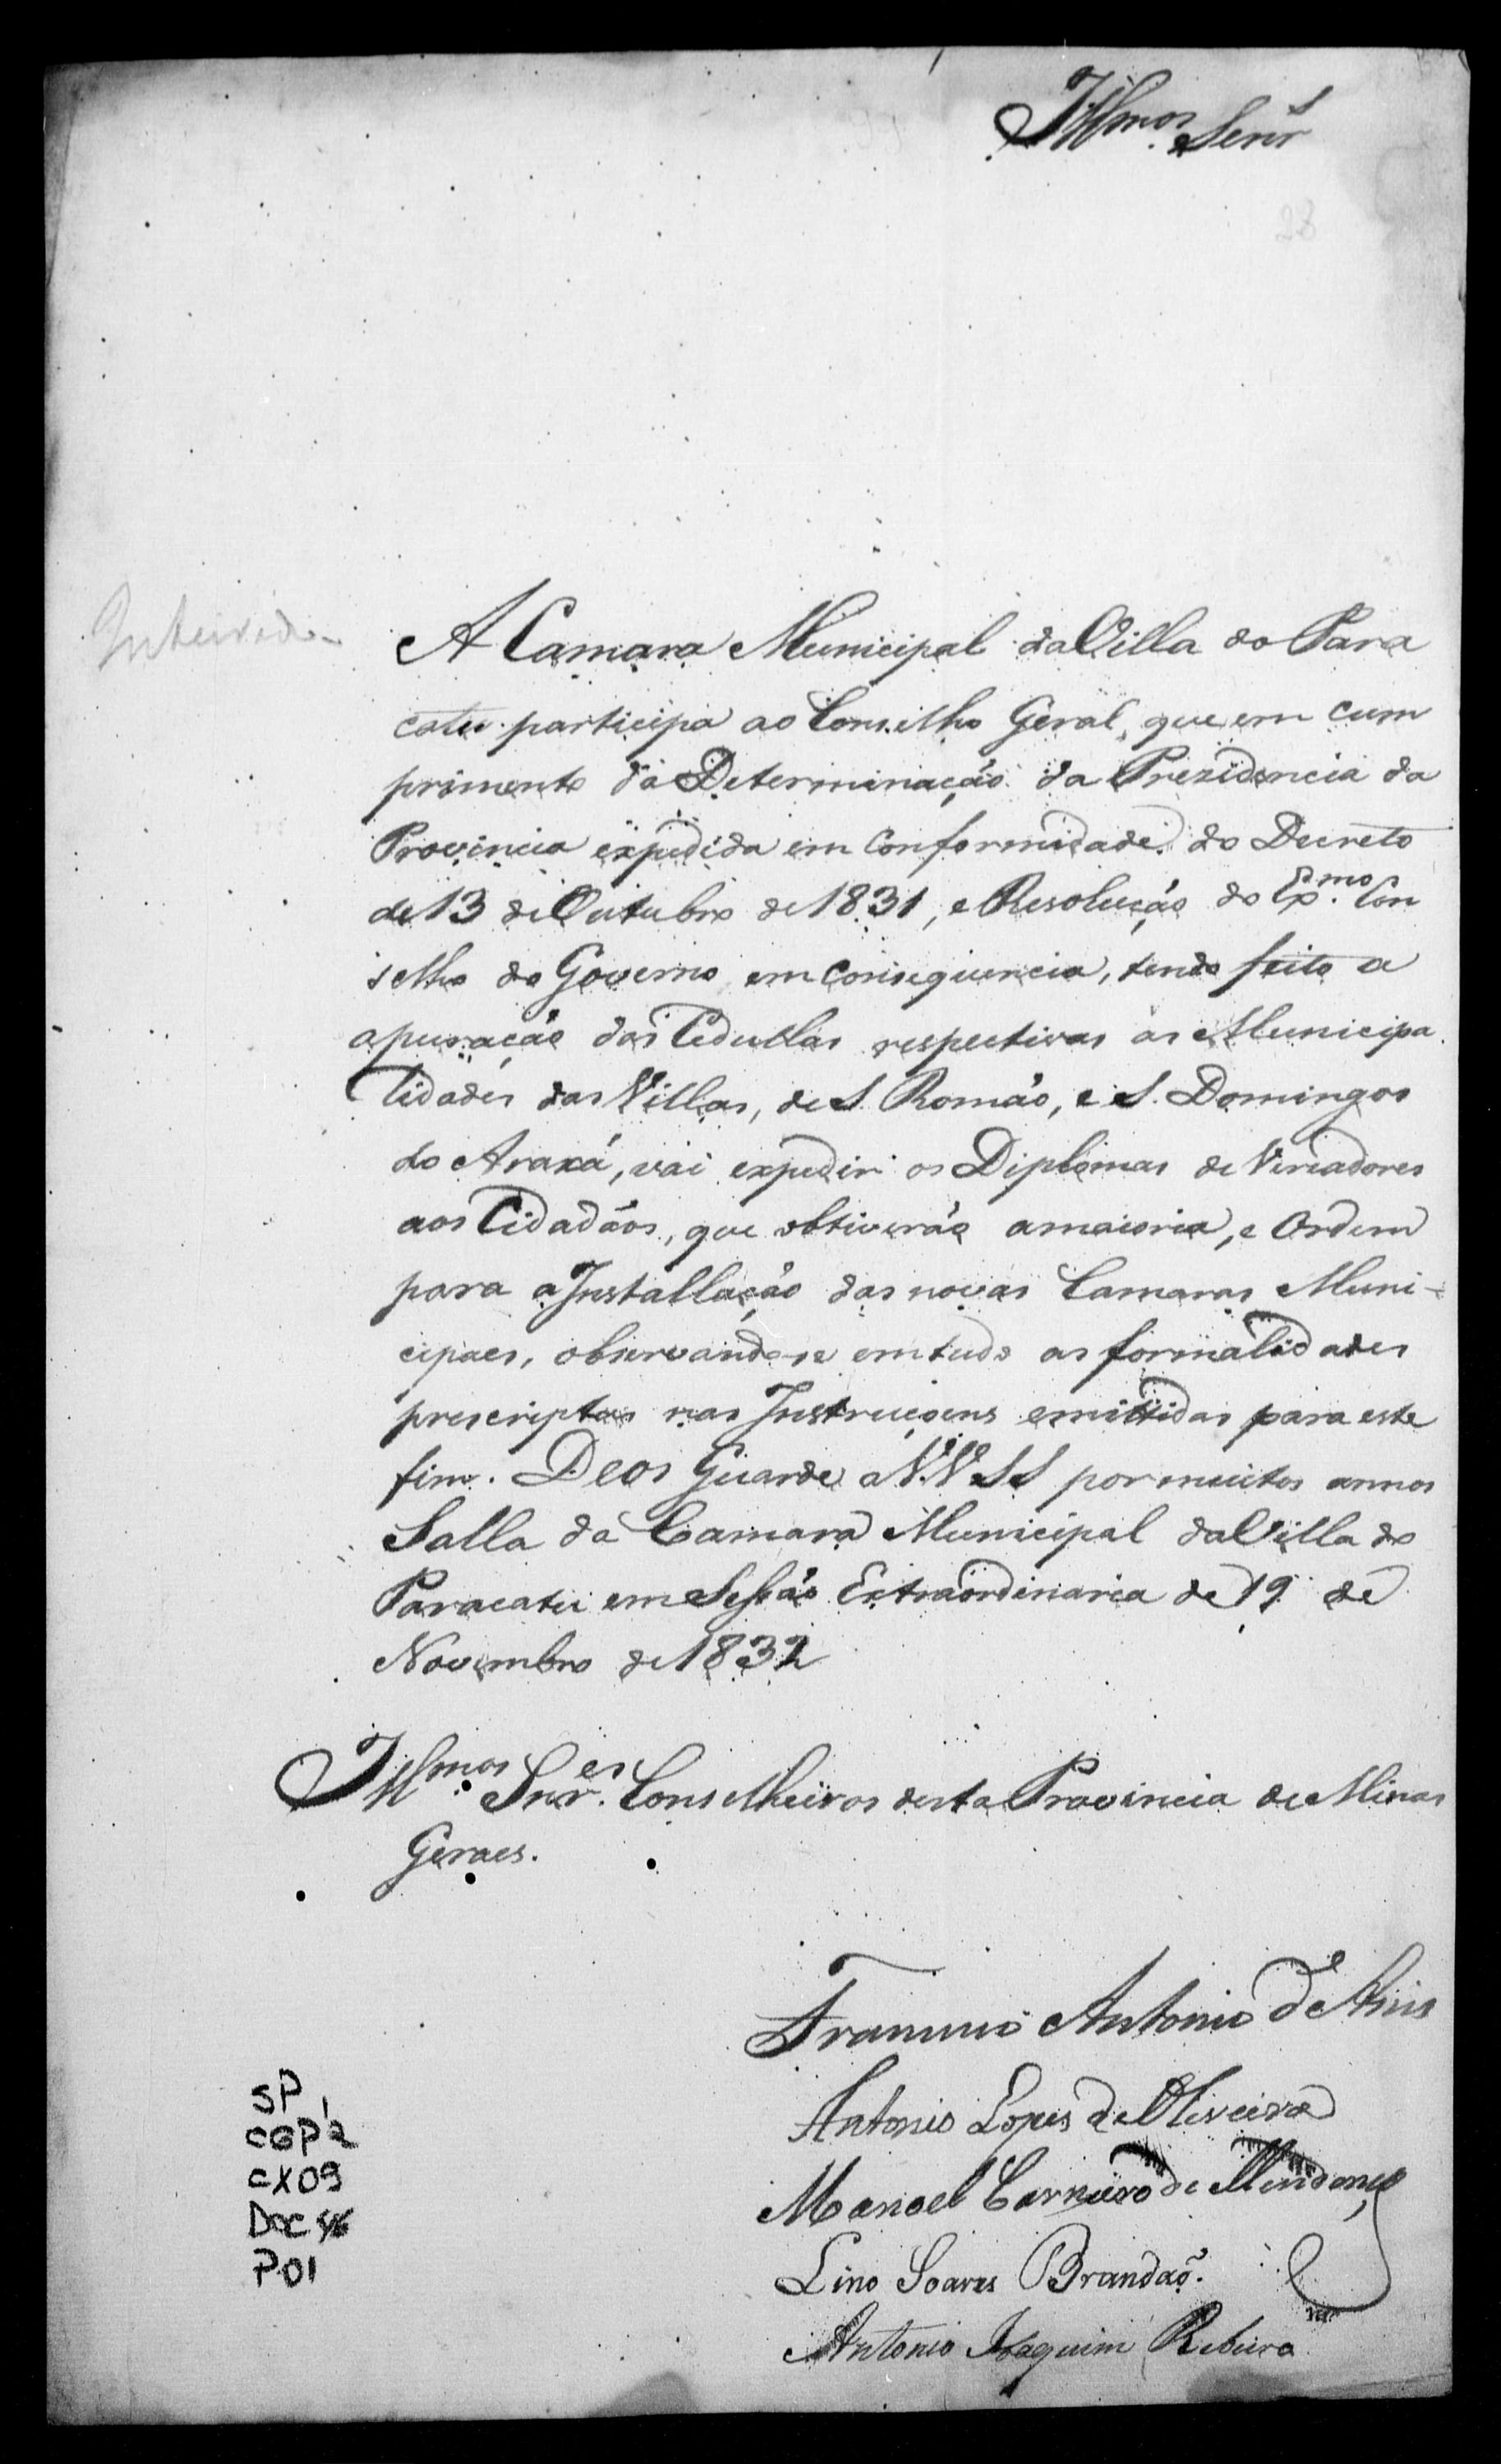 Illmos. Senrs
28
Inteirado
A Camara Municipal da Villa do Para
catu participa ao Conselho Geral, que em cum
primento da Determinação da Prezidencia da
Provincia expedida em Conformidade do Decreto
de 13 de Outubro de 1831, e Resolução do Exmo. Con
selho do Governo em Consequencia, tendo feito a
apuração das Cedullas respectivas as Municipa
lidades das Villas, de S. Romão, e S. Domingos
do Araxá, vai expedir os Diplomas de Veriadores
aos Cidadãos, que obtiverão amaioria, e Ordem
para a Installação das novas Camaras Muni-
cipaes, observando-se em tudo as formalidades
prescriptas nas Instrucçoens emittidas para este
fim. Deos Guarde a V.V. SS por muitos annos
Salla da Camara Municipal da Villa do
Paracatu em Sessão Extraordinaria de 19 de
Novembro de 1832
Illmos. Snres. Conselheiros desta Provincia de Minas
Geraes.
Antonio d'Assis
Antonio Lopes de Oliveira
Manoel Carneiro de Mendonça
Lino Soares Brandaõ.
Antonio Joaquim Ribeiro
SP
CGP 2
CX09
Doc
P01